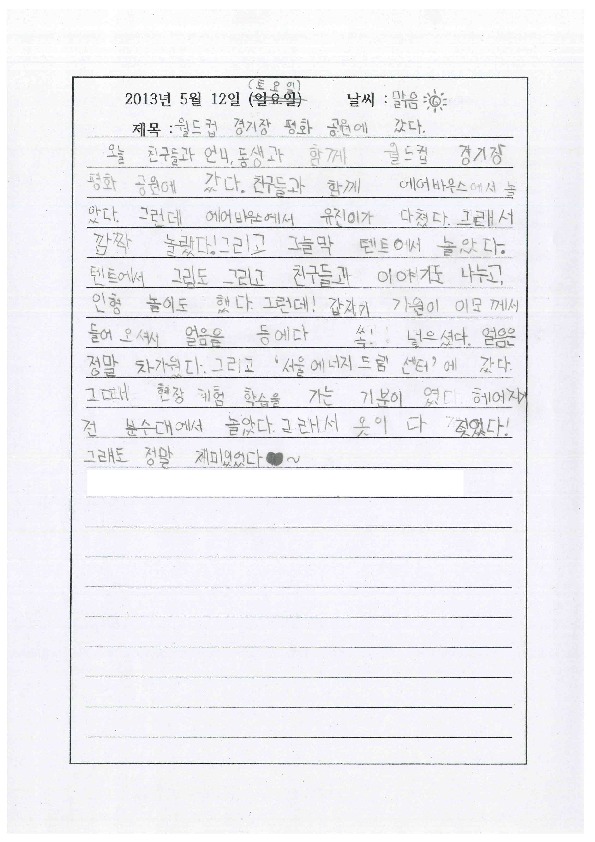 (토요일)
2013년 5월 12일 (일요일) 날씨 : 맑음
제목 : 월드컵 경기장 평화 공원에 갔다.
오늘 친구들과 언니, 동생과 함께 월드컵 경기장
평화 공원에 갔다. 친구들과 함께 에어바우스에서 놀
았다. 그런데 에어바우스에서 유진이가 다쳤다. 그래서
깜짝 놀랬다! 그리고 그늘막 텐트에서 놀았다.
텐트에서 그림도 그리고 친구들과 이야기도 나누고,
인형 놀이도 했다. 그런데! 갑자기 가원이 이모께서
들어 오셔서 얼음을 등에다 쏙! 넣으셨다. 얼음은
정말 차가웠다. 그리고 '서울에너지드림 센터'에 갔다.
그때 현장 체험 학습을 가는 기분이 였다. 헤어지기
전 분수대에서 놀았다. 그래서 옷이 다 젖었다!
그래도 정말 재미있었다♥~